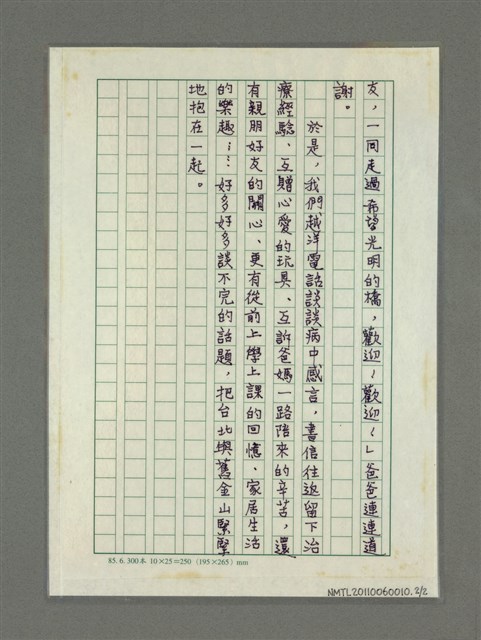 友，一同走過希望光明的橋，歡迎！歡迎！」爸爸連連道
謝。
於是，我們越洋電話談談病中感言，書信往返留下治
療經驗、互贈心愛的玩具、互訴爸媽一路陪來的辛苦，還
有親朋好友的關心、更有從前上學上課的回憶、家居生活
的樂趣……好多好多談不完的話題，把台北與舊金山緊緊
地抱在一起。
85.6.300本 10×25=250 (195×265) mm
NMTL20110060010.2/2